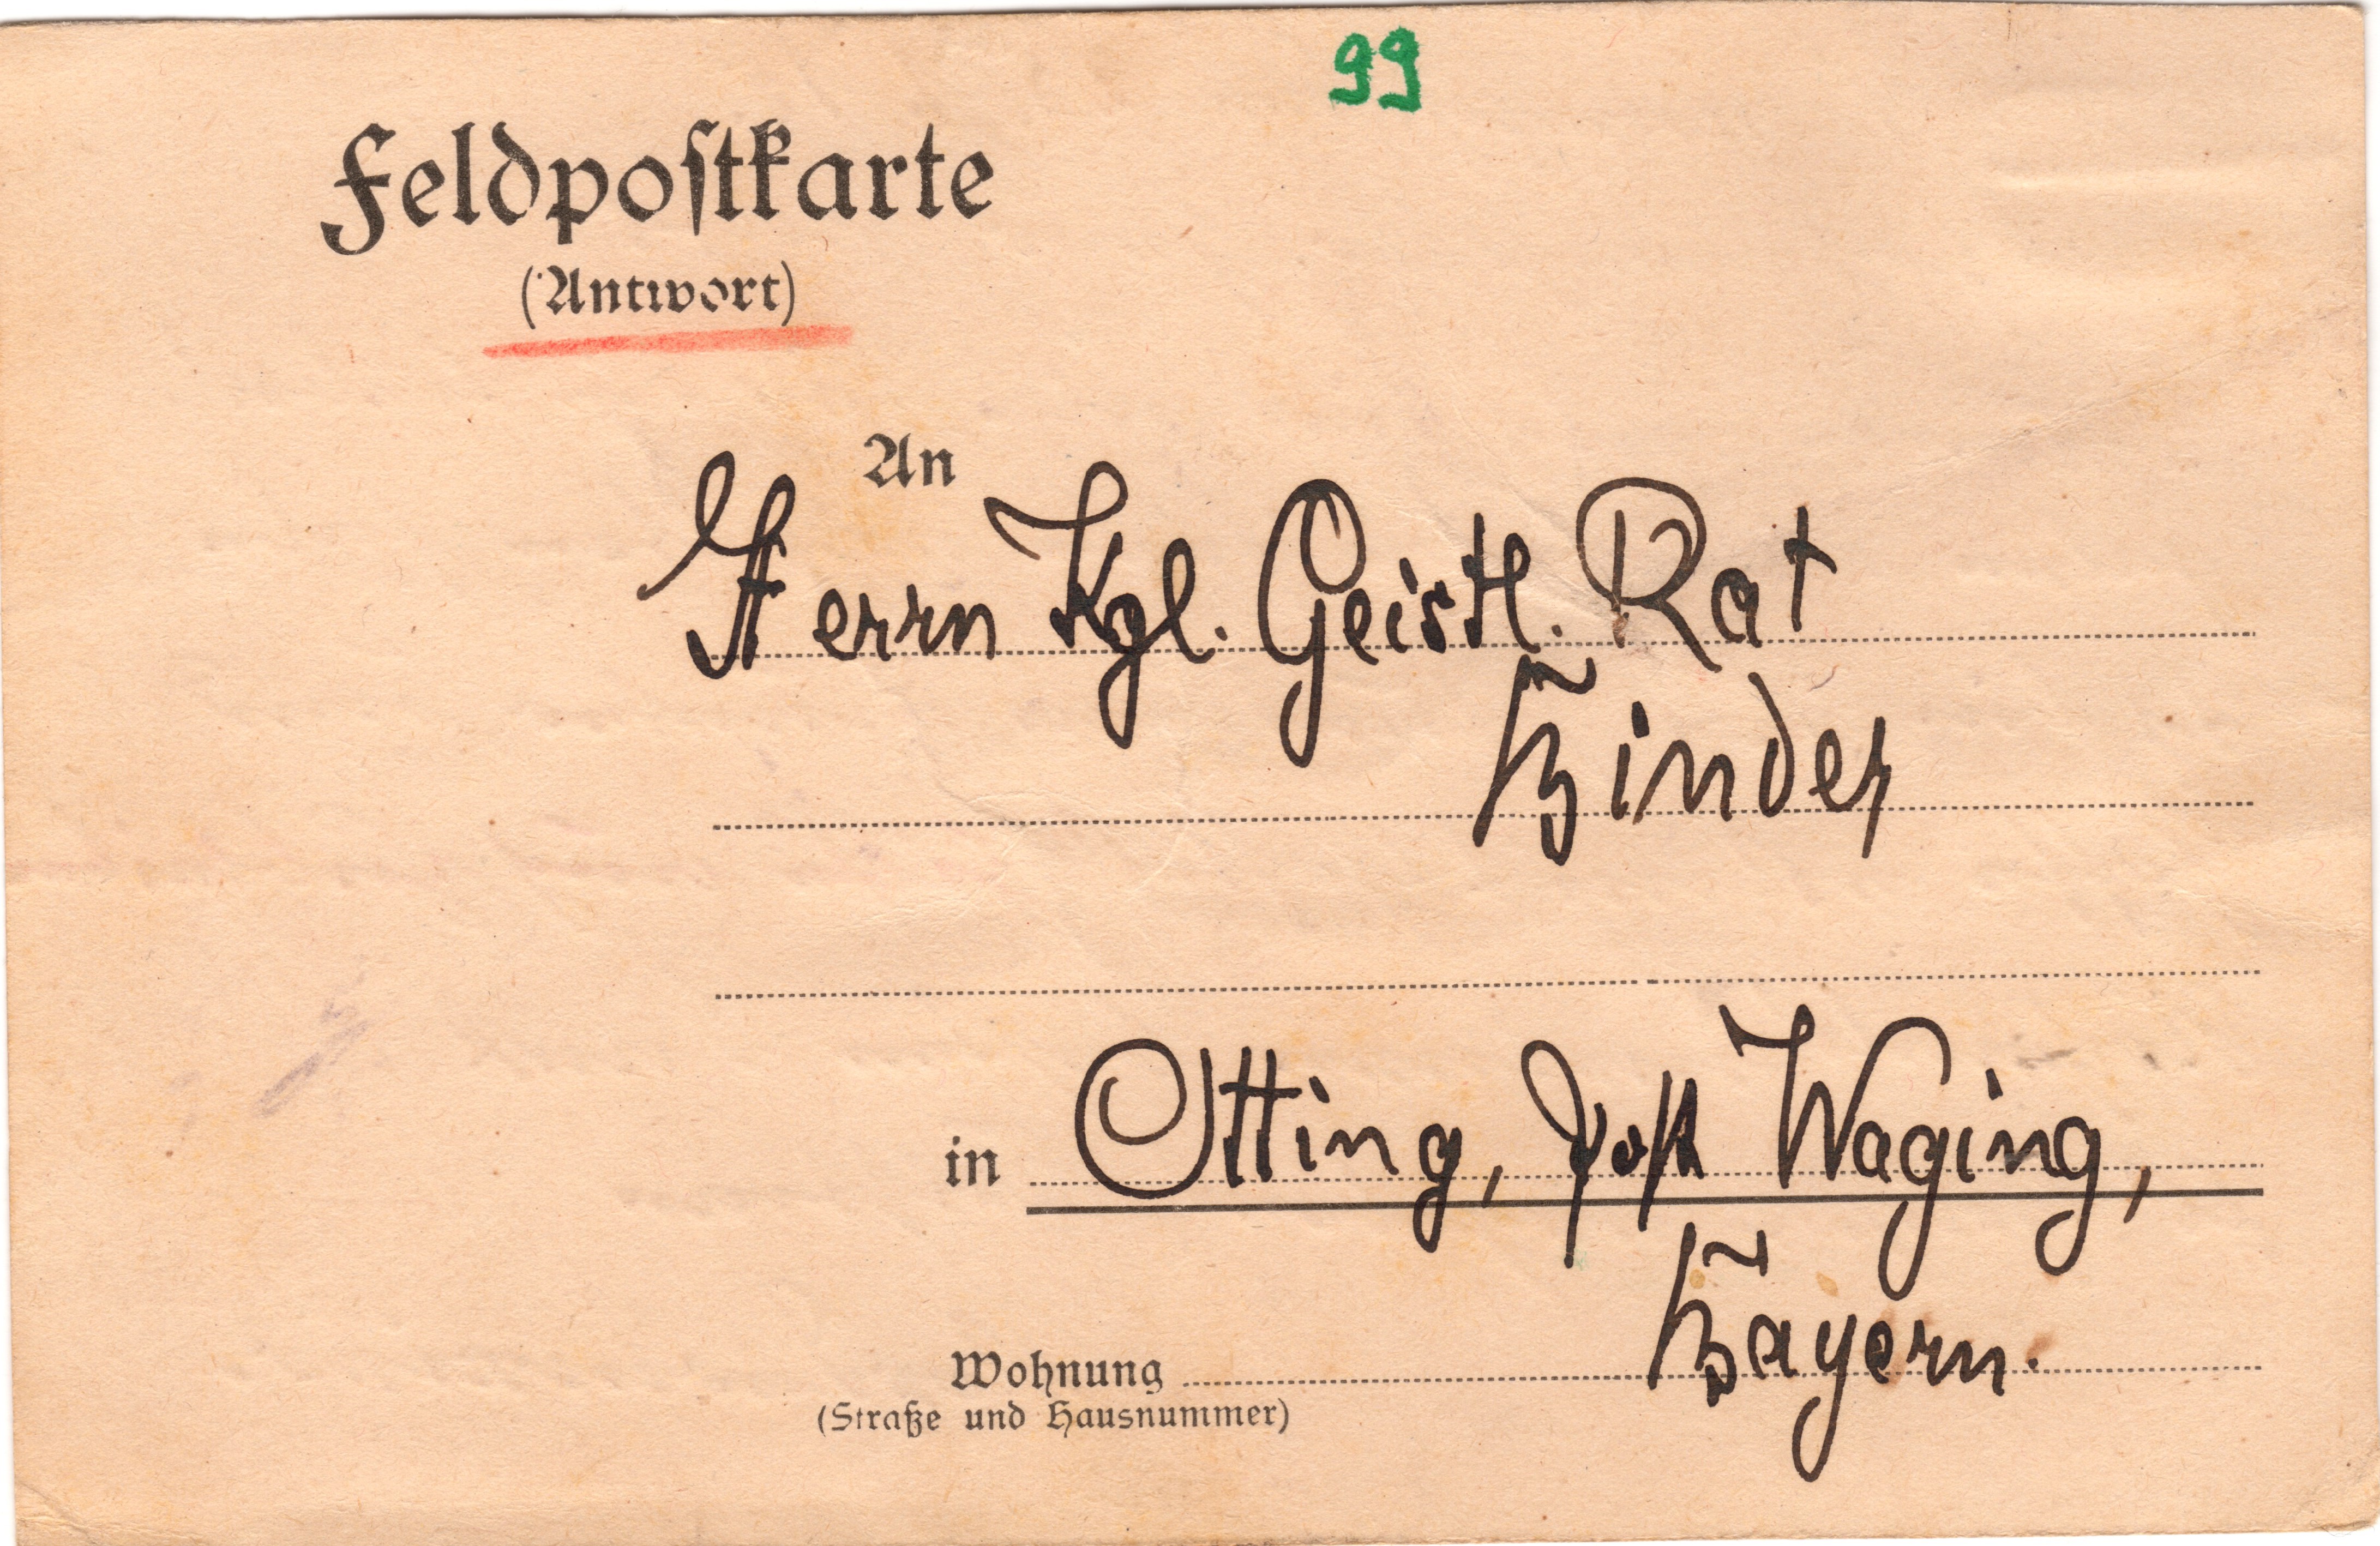 99
Feldpostkarte
(Antwort)
An
Herrn Kgl. Geistl. Rat
Binder
in Otting, Post Waging,
Bayern.
Wohnung
(Straße und Hausnummer)